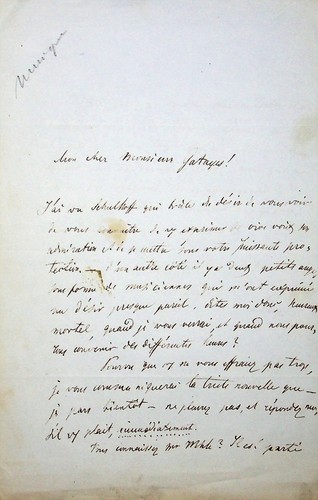 Musique
Mon cher Monsieur Gatayes!
J'ai vu Schulhoff qui brûle du désir de vous voir
de vous connaître de vy exprimer de vive voix son
admiration et de se mettre sous votre puissante pro-
tection. — D'un autre côté il y a deux petits anges
sous forme de musiciennes qui m'ont exprimé
un désir presque pareil. Dites moi donc, heureux
mortel, quand je vous verrai, et quand nous pouv
tous convenir des différentes heures?
Pourvu que vous effrayez pas trop,
je vous communiquerai la triste nouvelle que —
je pars bientôt — ne pleurez pas, et répondez moi
s'il vy plait, immédiatement.
Vous connaissez Mr ? Il est parti